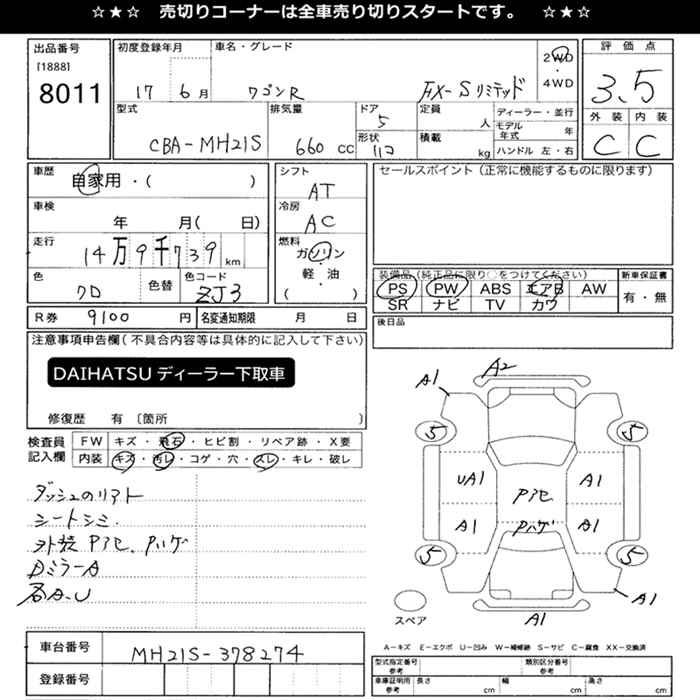 ☆★☆ 売切りコーナーは全車売り切りスタートです。 ☆★☆
出品番号
[1888]
8011
初度登録年月
17 6月
車名・グレード
ワゴンR FX-Sリミテッド
2WD
・
4WD
評価点
3.5
外装 内装
C C
型式
CBA-MH21S
排気量
660 cc
ドア
5
形状
定員
人
積載
kg
ディーラー・並行
モデル年式 年
ハンドル 左・右
車歴
自家用・( )
車検
年 月( 日)
走行
14万9千739km
色
色替
色コード
ZJ3
シフト
AT
冷房
AC
燃料
ガソリン
・
軽・油
( )
セールスポイント(正常に機能するものに限ります)
装備品(純正品に限り○をつけてください)
PS PW ABS エアB AW
SR ナビ TV カワ
新車保証書
有・無
R券 9100円
名変通知期限 月 日
後日品
注意事項申告欄(不具合内容等は具体的に記入して下さい)
DAIHATSU ディーラー下取車
修復歴 有 〔箇所
検査員記入欄
FW キズ・飛石・ヒビ割・リペア跡・X要
内装 キズ・汚レ・コゲ・穴・スレ・キレ・破レ
シートシミ.
A1 A2
5 5
UA1 A1
A1 Pハゲ A1
5 5
A1
A1
スペア
車台番号 MH21S-378274
登録番号
A-キズ E-エクボ U-凹み W-補修跡 S-サビ C-腐食 XX-交換済
型式指定番号
参考
類別区分番号
参考
車庫証明用
参考
長さ cm 幅 cm 高さ cm